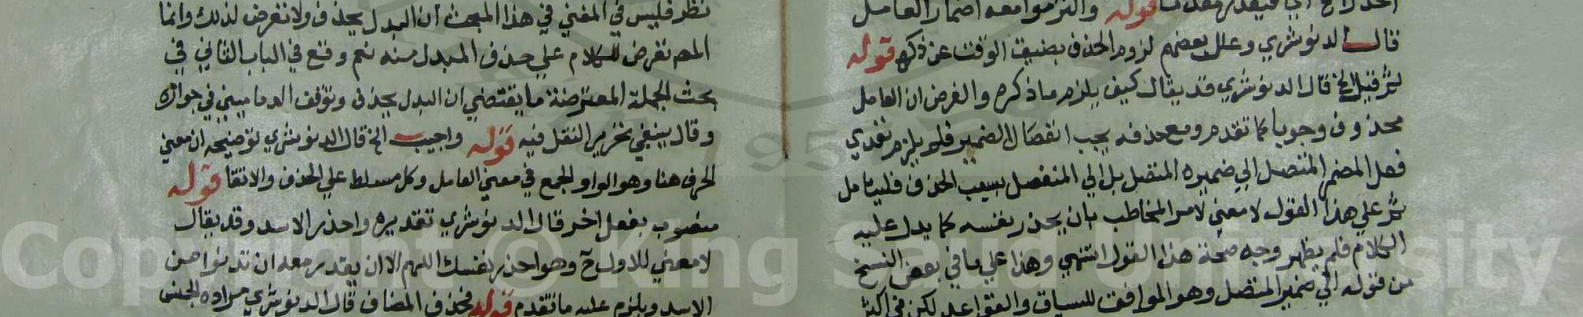 قال الدنوشري وعلل بعضهم لزوم الحذف بضيق الوقت عن ذكره قوله
ثم قيل الخ قال الدنوشري قد يقال كيف يلزم ما ذكره والفرض ان العامل
محذوف وجوبا كما تقدم ومع حذفه يجب انفصال الضمير فلم يلزم تعدي
فعل المضمر المتصل الي ضميره المتصل بل الي المنفصل بسبب الحذف فليتامل
ثم علي هذا القول لا معني لامر المخاطب بان يحذر نفسه كما يدل عليه
الكلام فلم يظهر وجه صحة هذا القول انتهي وهذا علي ما في بعض النسخ
من قوله الي ضميره المتصل وهو الموافق للسياق والقواعد لكن في اكثر
نظر فليس في المغني في هذا المبحث ان البدل يحذف ولا تعرض لذلك وانما
المص تعرض للكلام علي حذف المبدل منه نعم وقع في الباب الثاني في
بحث الجملة المعترضة ما يقتضي ان البدل يحذف وتوقف الدماميني في جوازه
وقال ينبغي تحرير النقل فيه قوله واجيب الخ قال الدنوشري توضيحه ان معني
الحرف هنا وهو الواو الجمع في معني العامل وكل مسلط علي الحذف والاتقا قوله
منصوب بفعل اخر قال الدنوشري تقديره واحذر الاسد وقد يقال
لا معني للاول ح وهو احذر نفسك اللهم الا ان يقدر معه ان تدنوا من
الاسد ويلزم عليه ما تقدم قوله فحذف المضاف قال الدنوشري مراده الجنس
Copyright © King Saud University
1957